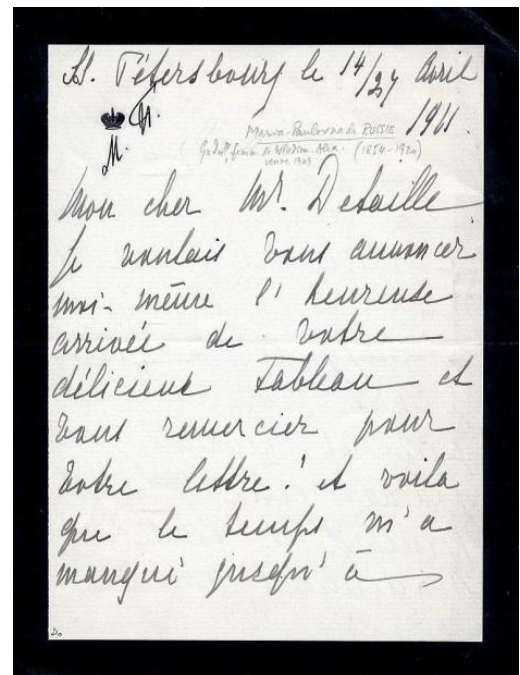 St. Pétersbourg le 14/27 Avril
1911.
M.
Maria-Paulovna de RUSSIE
(1854-1920)
veuve 1909
Mon cher Mr. Detaille
je voulais vous annoncer
moi-même l'heureuse
arrivée de votre
délicieux tableau et
vous remercier pour
votre lettre! et voila
que le temps m'a
manqué jusqu'à